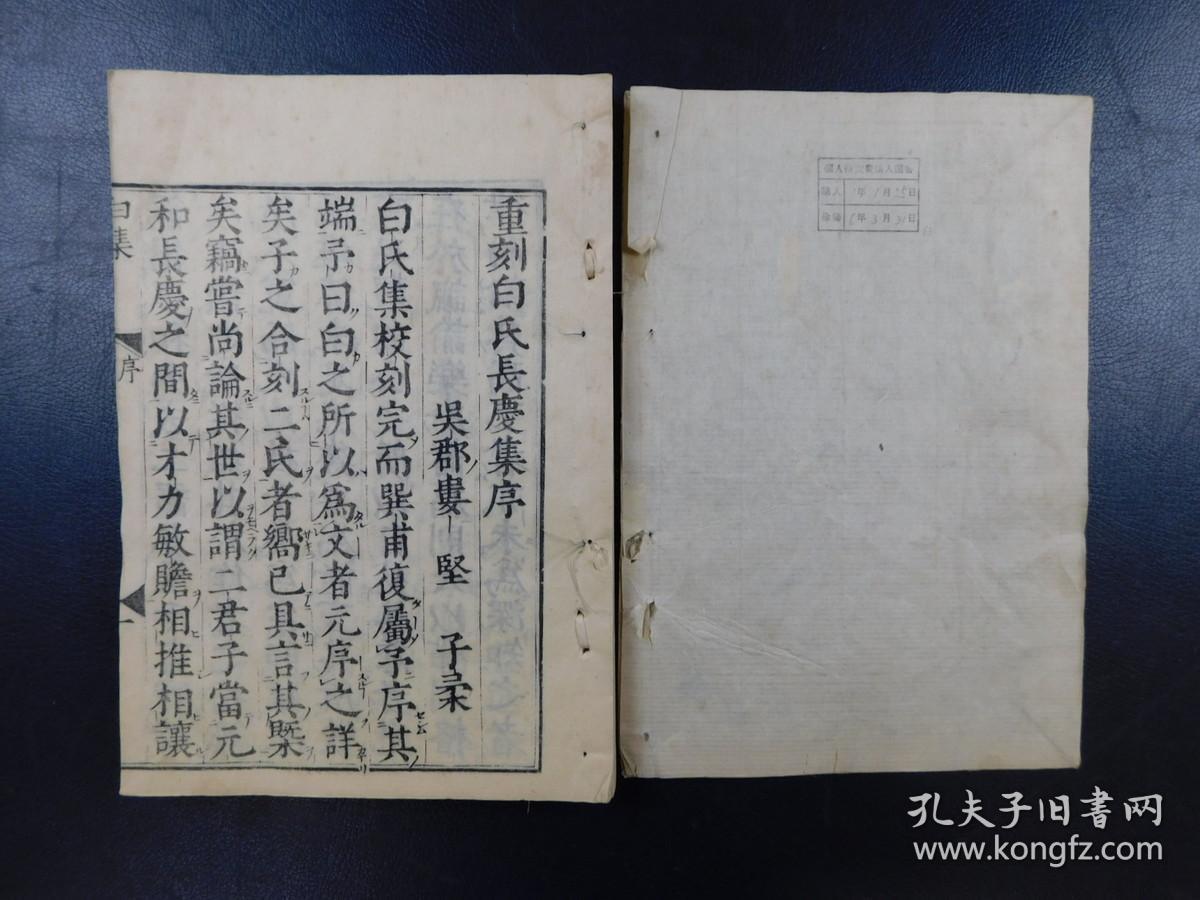 重刻白氏長慶集序
吳郡婁堅 子柔
白氏集校刻完而巽甫復屬予序其
端予曰白之所以為文者元序之詳
矣子之合刻二氏者嚮已具言其槩
矣竊嘗尚論其世以謂二君子當元
和長慶之間以才力敏贍相推相讓
白集
序
一
年 月 日
年 3 月 31 日
孔夫子旧书网
www.kongfz.com